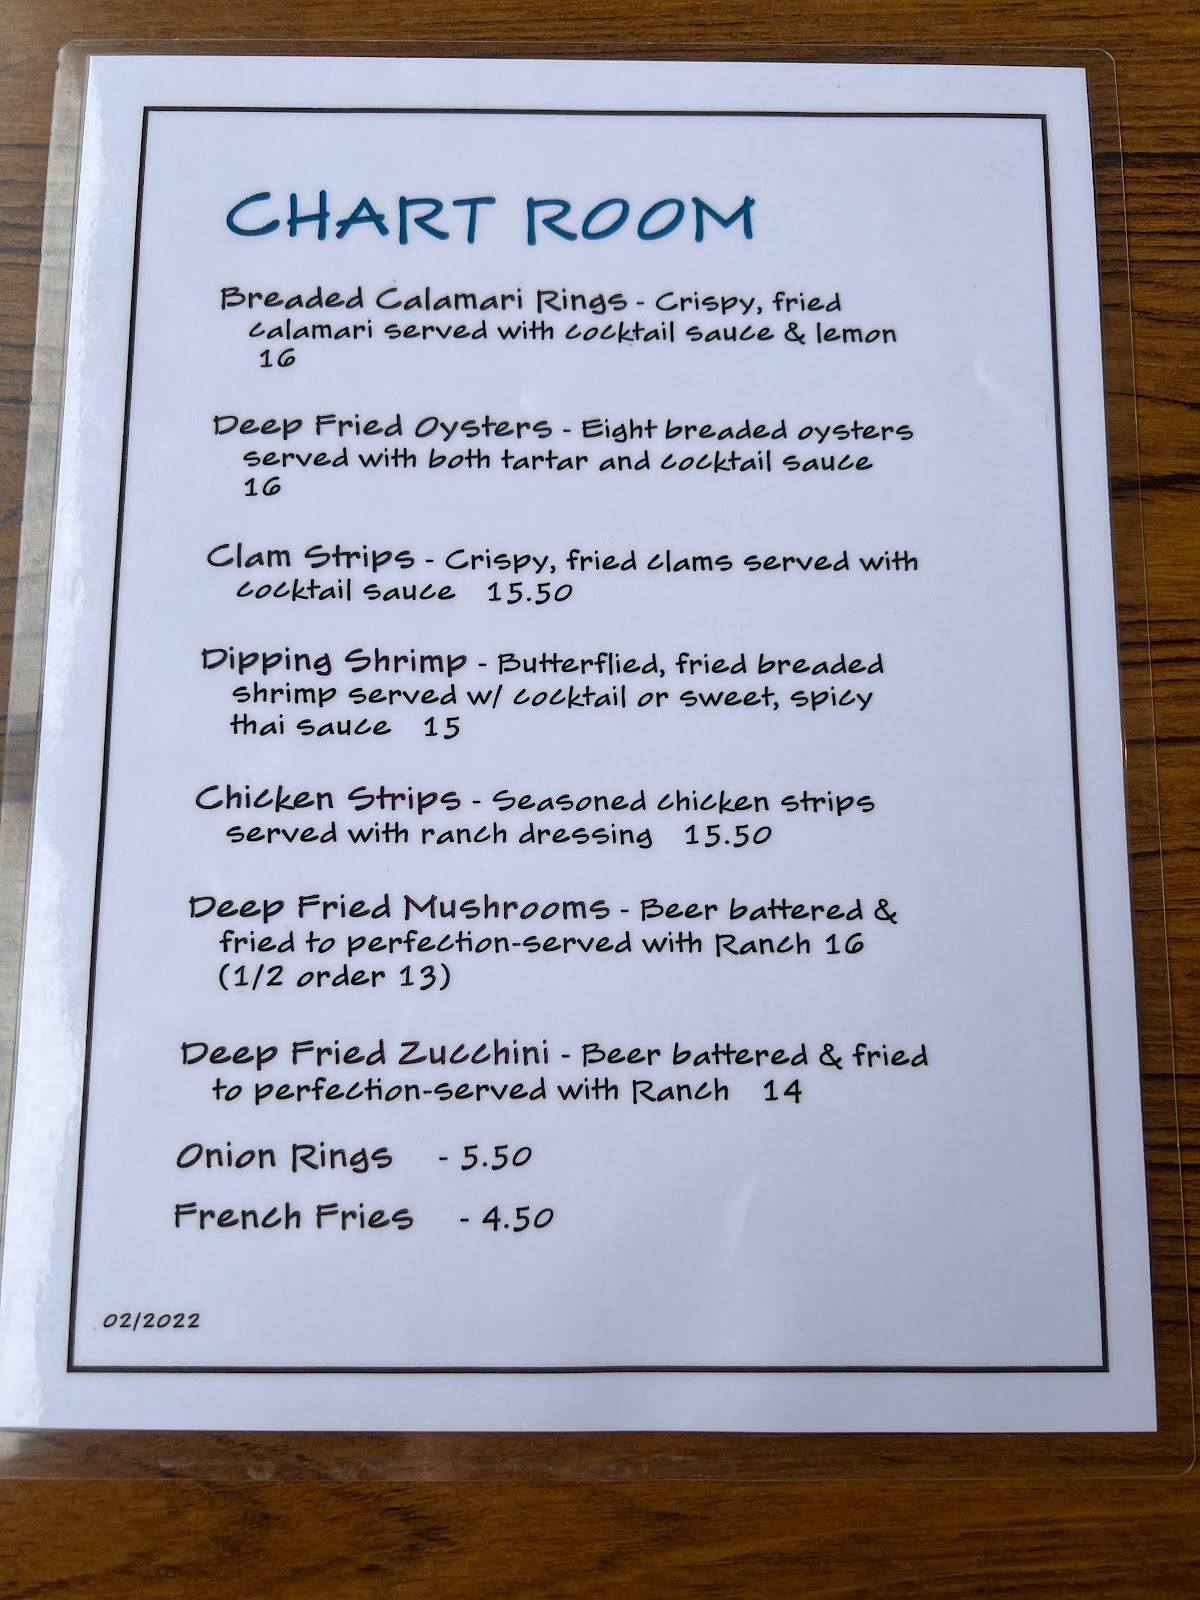 CHART ROOM
Breaded Calamari Rings - Crispy, fried
calamari served with cocktail sauce & lemon
16
Deep Fried Oysters - Eight breaded oysters
served with both tartar and cocktail sauce
16
Clam Strips - Crispy, fried clams served with
cocktail sauce 15.50
Dipping Shrimp - Butterflied, fried breaded
shrimp served w/ cocktail or sweet, spicy
thai sauce 15
Chicken Strips - Seasoned chicken strips
served with ranch dressing 15.50
Deep Fried Mushrooms - Beer battered &
fried to perfection-served with Ranch 16
(1/2 order 13)
Deep Fried Zucchini - Beer battered & fried
to perfection-served with Ranch 14
Onion Rings - 5.50
French Fries - 4.50
02/2022